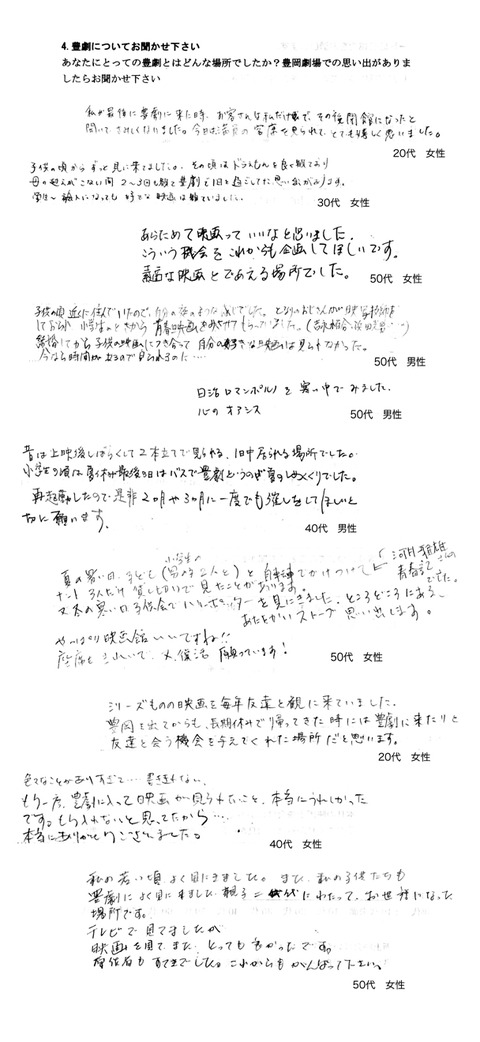 4. 豊劇についてお聞かせ下さい
あなたにとっての豊劇とはどんな場所でしたか？豊岡劇場での思い出がありま
したらお聞かせ下さい
私が最後に豊劇に来た時、お客さんは私だけで、その後閉館になったと
聞いて、さみしくなりました。今日は満員の客席を見られて、とても嬉しく思いました。
20代 女性
子供の頃からずっと見に来てました。その頃はドラえもんを良く観ており
母の迎えがこない間 2〜3回も観て豊劇で1日を過ごしてた思い出があります。
学生〜 婦人になっても 好きな映画は観ていました。
30代 女性
あらためて映画って いいなと思いました。
こういう機会を これからも企画してほしいです。
素直な映画とであえる場所でした。
50代 女性
子供の頃近に住んでいたので、自分の家のような感じでした。となりのおじさんが映写技師を
しており 小学生のときから 青春映画をみさせてもらっていました。(吉永小百合・浜田光夫…)
結婚してから 子供の映画につき合って 自分の好きな映画は見られなかった。
今なら時間があるので見られるのに…
50代 男性
日活ロマンポルノを 暑い中でみました。
心のオアシス
50代 男性
昔は上映後しばらくして2本立てで見られる、1日中居られる場所でした。
小学生の頃は夏休み最後の日はバスで豊劇というのが夏のしめくくりでした。
再起動したので是非2ヵ月や3ヵ月に一度でも催しをしてほしいと
切に願います。
40代 男性
小学生の
夏の暑い日、子ども(男の子2人と)と 自転車でかけつけて
河月 青春記 さんの でした。
ナント 3人だけ 貸し切りで見たことがあります。
又冬の寒い日 子供会でハリーポッターを見にきました。ところどころにある、
あたたかいストーブ 思い出します。
やっぱり映画館 いいですね!!
座席もきれいで、又、復活 願っています!
50代 女性
シリーズものの映画を毎年友達と観に来ていました。
豊岡を出てからも、長期休みで帰ってきた時には豊劇に来たりと
友達と会う機会を与えてくれた場所だと思います。
20代 女性
色んなことがありすぎて… 書ききれない。
もう一度、豊劇に入って映画が見られたこと、本当にうれしかった
です。もう入れないと思ってたから…
本当にありがとうございました。
40代 女性
私の若い頃 よく見にきました。また、私の子供たちも
豊劇によく見に来ました。親子二代にわたって、お世話になった
場所です。
テレビで 見てましたが
映画を見て、また、とっても良かったです。
座席も すてきでした。これからも がんばって下さい。
50代 女性